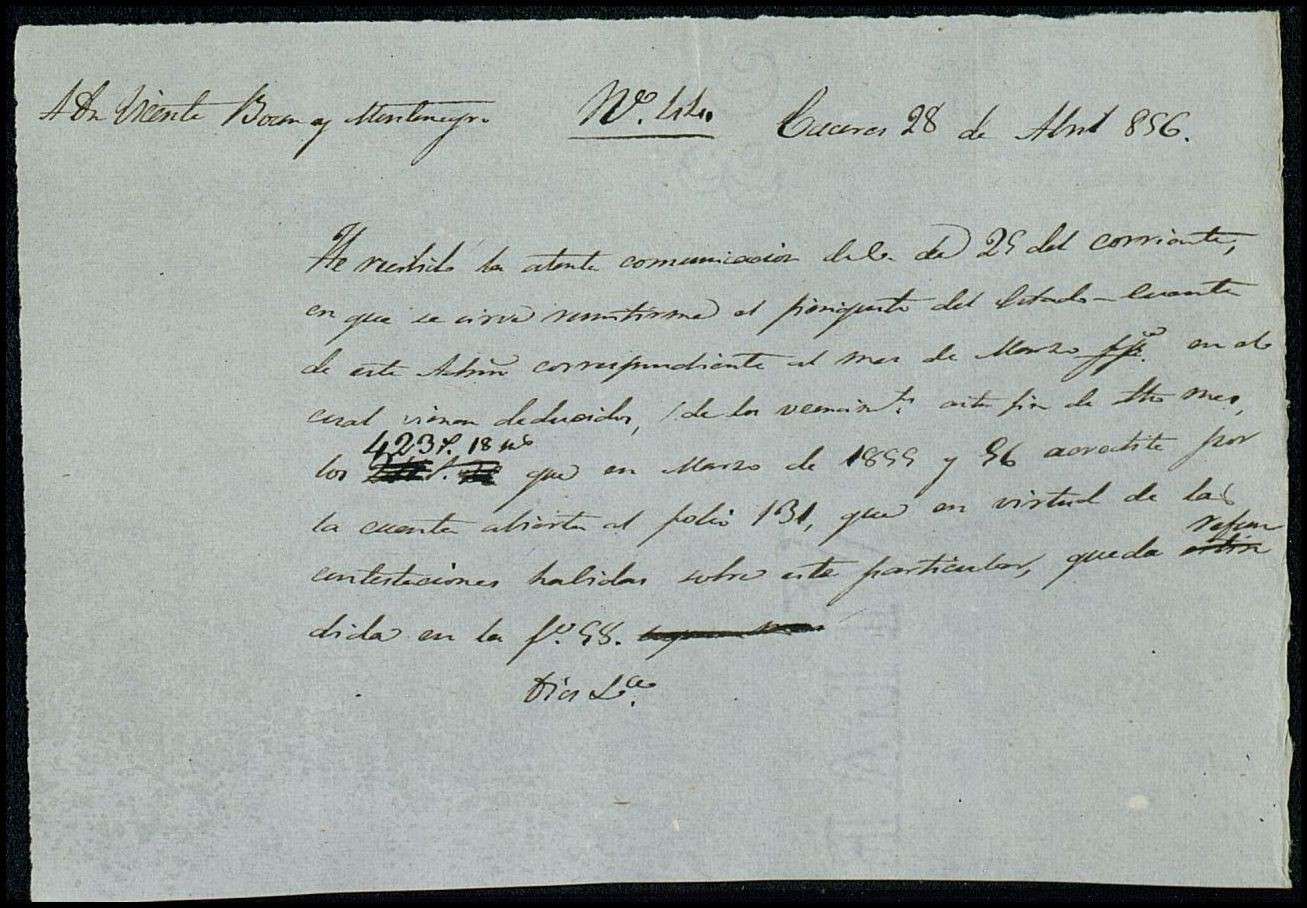 A Dn Vicente Bocm y Montenegro Nº. 44. Caceres 28 de Abril 856.
He recibido la atenta comunicacion de V. de 25 del corriente,
en que se sirve remitirme el finiquito del Estado-Cuenta
de este Admon correspondiente al mes de Marzo ppº. en el
cual vienen deducidos, de los vencimtos. este fin de dho mes,
423 r. 18 ms
los que en Marzo de 1855 y 56 acredité por
la cuenta abierta al folio 131, que en virtud de las
refun
contestaciones habidas sobre este particular, queda
dida en la fº. 58.
Dios &a.